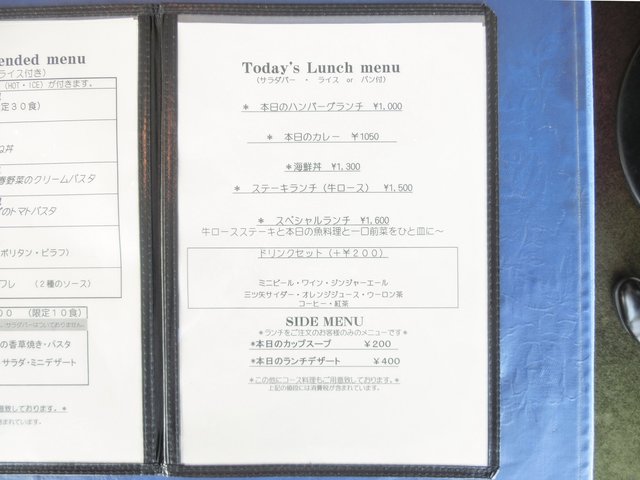 ended menu
ライス付き)
(HOT・ICE)が付きます。
定30食)
丼
春野菜のクリームパスタ
のトマトパスタ
ポリタン・ピラフ)
フレ (2種のソース)
00 (限定10食)
サラダバーはついておりません。
の香草焼き・パスタ
サラダ・ミニデザート
意致しております。*
まれています。
Today's Lunch menu
(サラダバー ・ ライス or パン付)
* 本日のハンバーグランチ ¥1,000
* 本日のカレー ¥1050
*海鮮丼 ¥1,300
* ステーキランチ(牛ロース) ¥1,500
* スペシャルランチ ¥1,600
牛ロースステーキと本日の魚料理と一口前菜をひと皿に～
ドリンクセット(+¥200)
ミニビール・ワイン・ジンジャーエール
三ツ矢サイダー・オレンジジュース・ウーロン茶
コーヒー・紅茶
SIDE MENU
*ランチをご注文のお客様のみのメニューです*
*本日のカップスープ ¥200
*本日のランチデザート ¥400
*この他にコース料理もご用意致しております。*
上記の値段には消費税が含まれています。